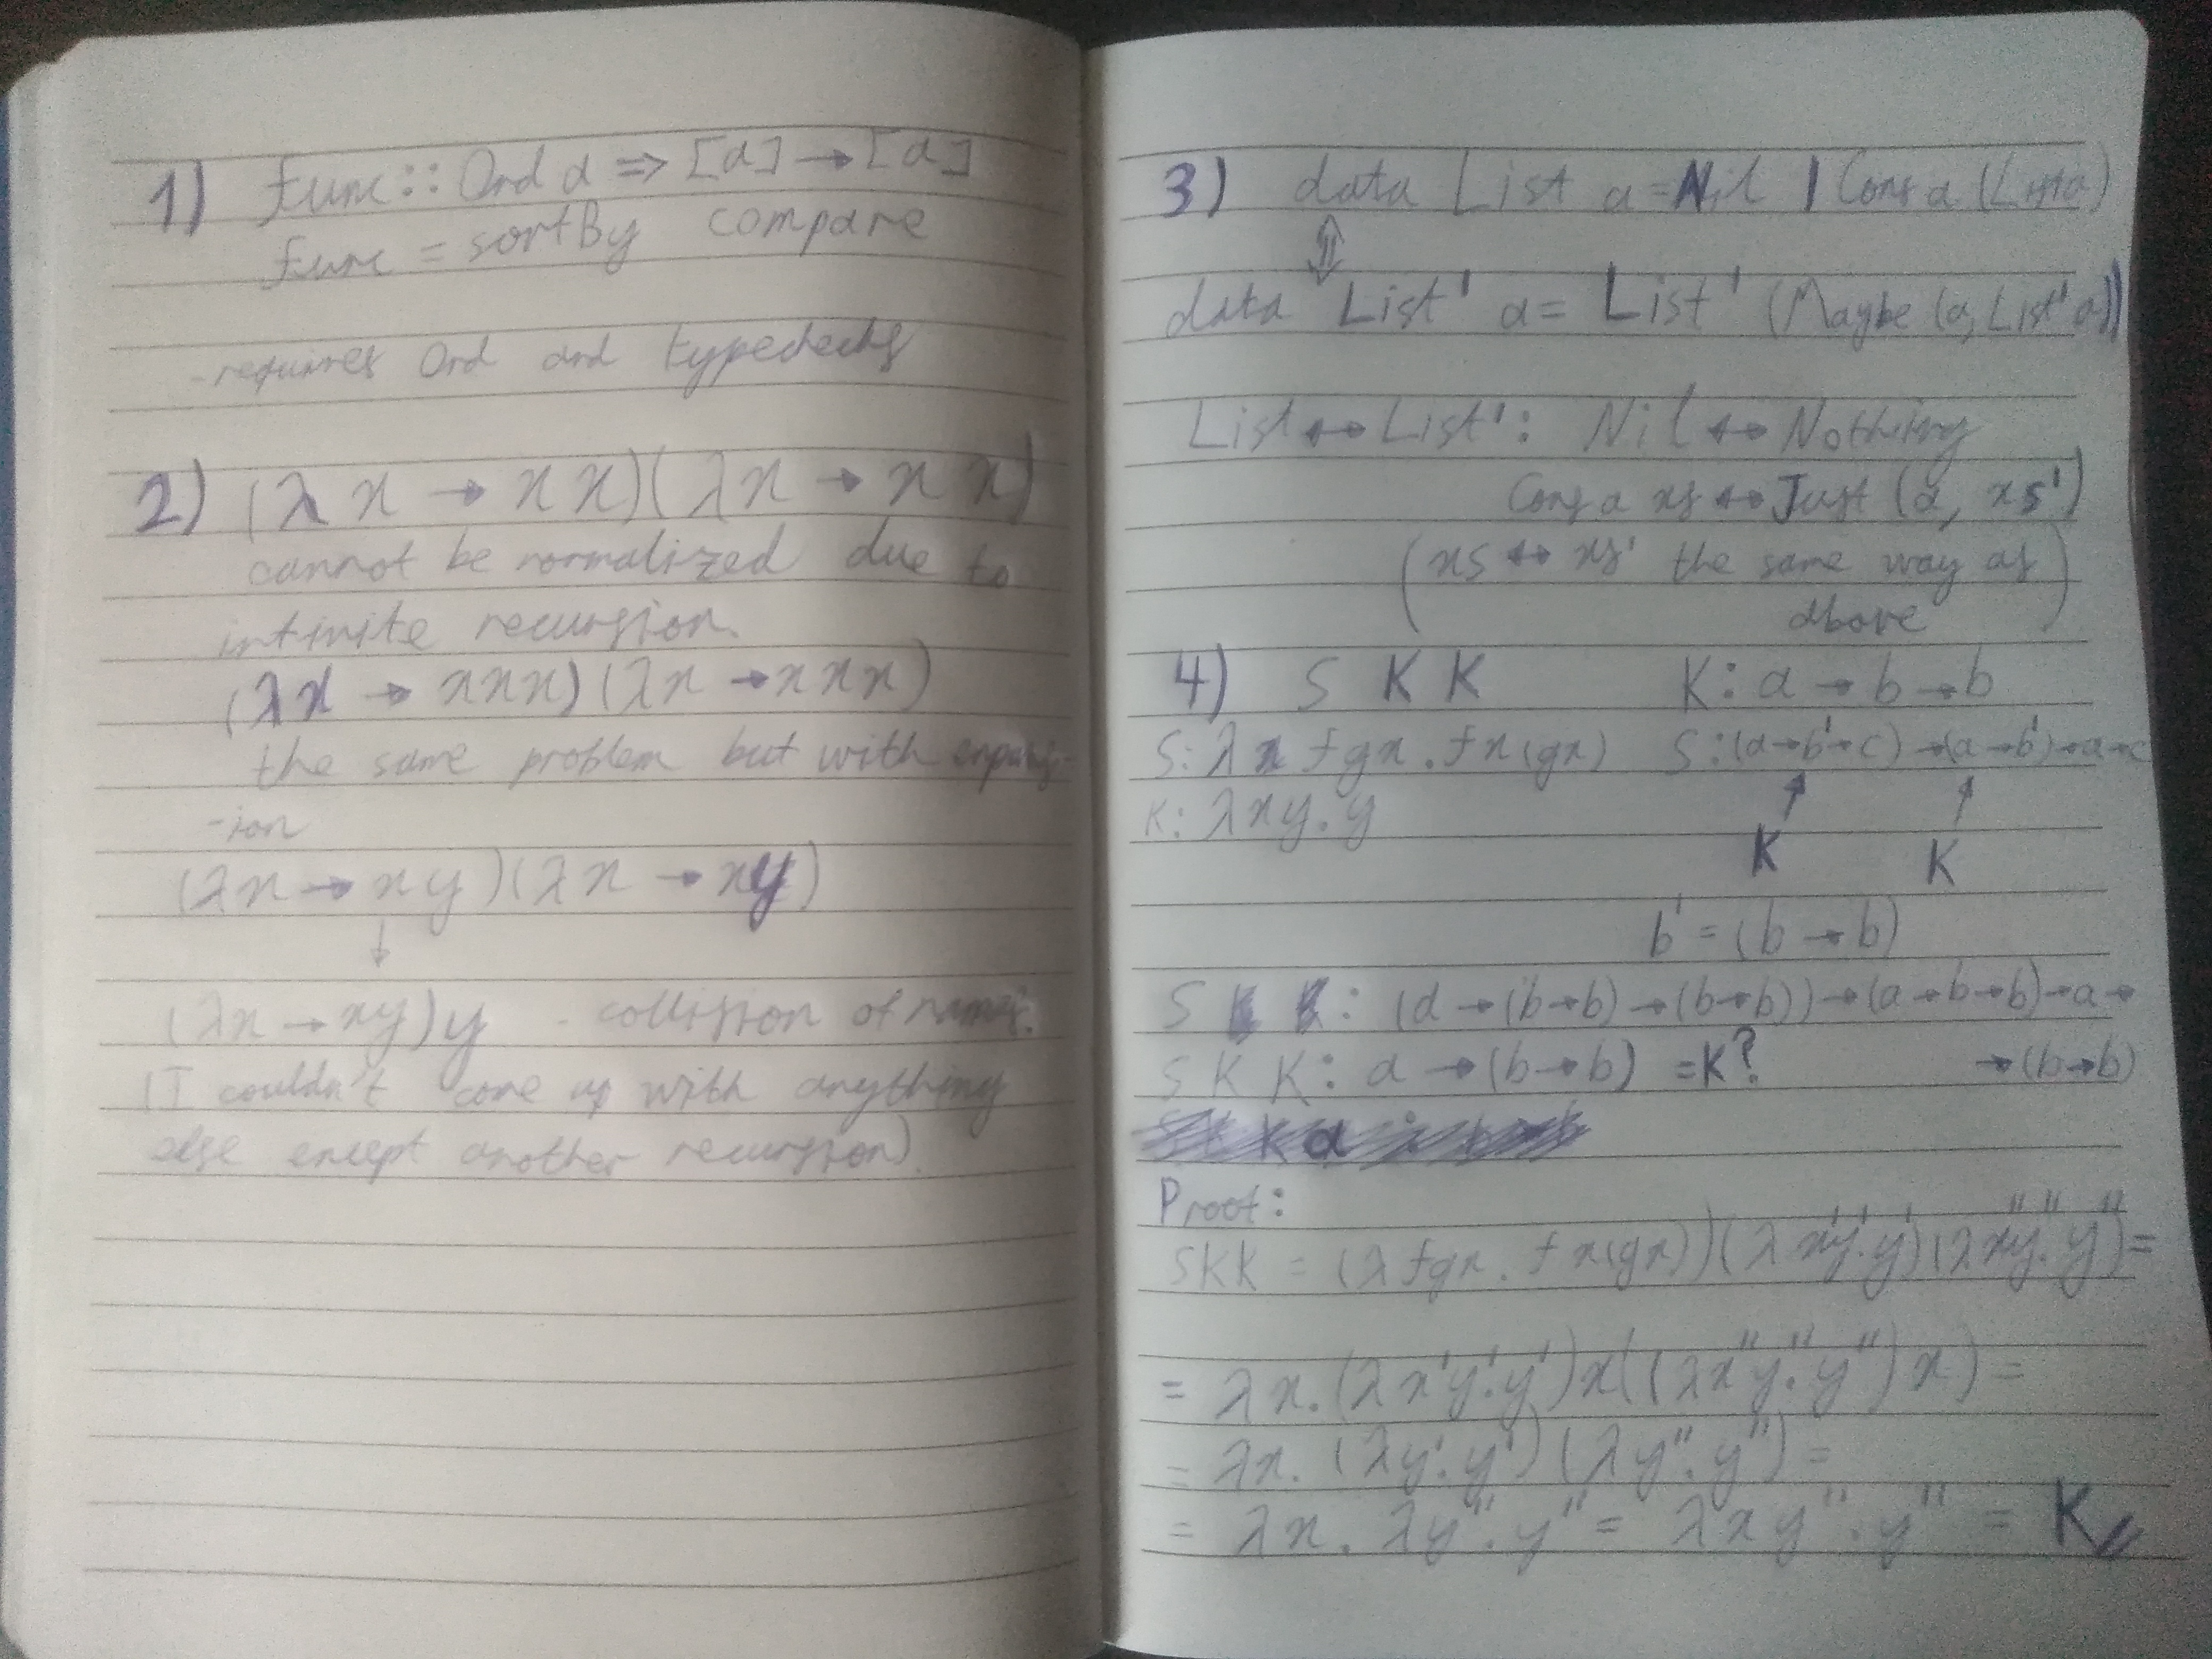 1) func :: Ord a => [a] → [a]
func = sortBy compare
- requires Ord and typechecks
2) (λ x → x x)(λ x → x x)
cannot be normalized due to
infinite recursion.
(λx → xxx)(λx → xxx)
the same problem but with expans-
-ion
(λx → xy)(λx → xy)
↓
(λx → xy)y - collision of names.
(I couldn't come up with anything
else except another recursion).
3) data List a = Nil | Cons a (List a)
⇕
data List' a = List' (Maybe (a, List' a))
List ↔ List': Nil ↔ Nothing
Cons a xs ↔ Just (a, xs')
(xs ↔ xs' the same way as
above)
4) S K K K: a → b → b
S: λ fgx.fx(gx) S: (a→b'→c)→(a→b')→a→c
K: λxy.y
K K
b' = (b → b)
S : (a→(b→b)→(b→b))→(a→b→b)→a→
→(b→b)
S K K: a → (b→b) = K?
Proof:
SKK = (λfgx.fx(gx))(λx'y'.y')(λx''y''.y'') =
= λx.(λx'y'.y')x((λx''y''.y'')x) =
= λx.(λy'.y')(λy''.y'') =
= λx.λy''.y'' = λxy''.y'' = K